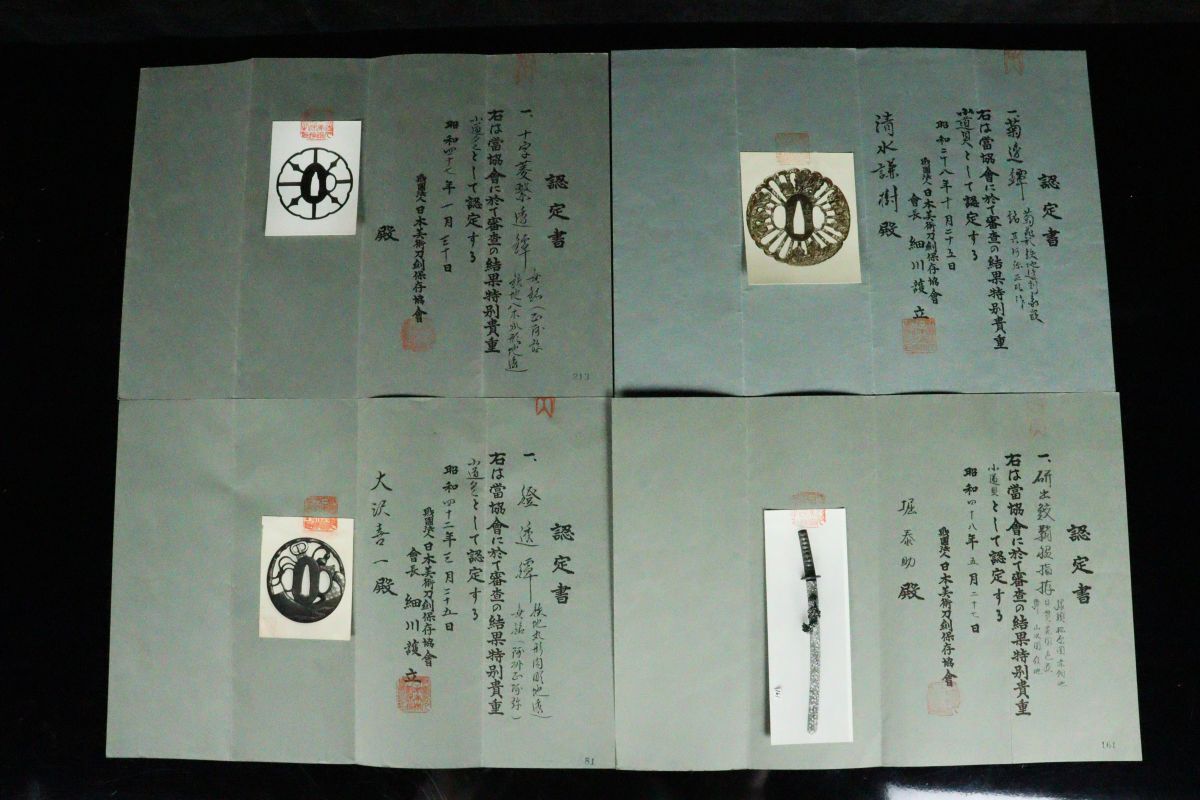 認定書
一、十字菱繋透鐔
右は當協會に於て審査の結果特別貴重
小道具として認定する
昭和四十七年一月三十日
財團法人日本美術刀劍保存協會
殿
213
認定書
一菊透鐔
右は當協會に於て審査の結果特別貴重
小道具として認定する
昭和二十八年十月二十五日
財團法人日本美術刀劍保存協會
會長 細川護立
清水謙樹殿
認定書
一、
透鐔
無銘(阿州正阿弥)
右は當協會に於て審査の結果特別貴重
小道具として認定する
昭和四十二年三月二十五日
財團法人日本美術刀劍保存協會
會長 細川護立
大沢喜一殿
81
認定書
一、研出鮫鞘脇指拵
右は當協會に於て審査の結果特別貴重
小道具として認定する
昭和四十八年五月二十七日
財團法人日本美術刀劍保存協會
堀泰助殿
161